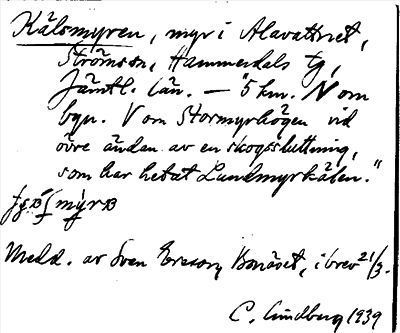 Kälsmyren, myr i Alavattnet,
Strömsun, Hammerdals tg,
Jämtl. län. — "5 km. N om
byn. V om Stormyrhögen vid
övre ändan av en skogssluttning,
som har hetat Lundmyrkälen."
Medd. av Sven Ericson, Bonäset, i brev 21/3.
C. Lindberg 1939